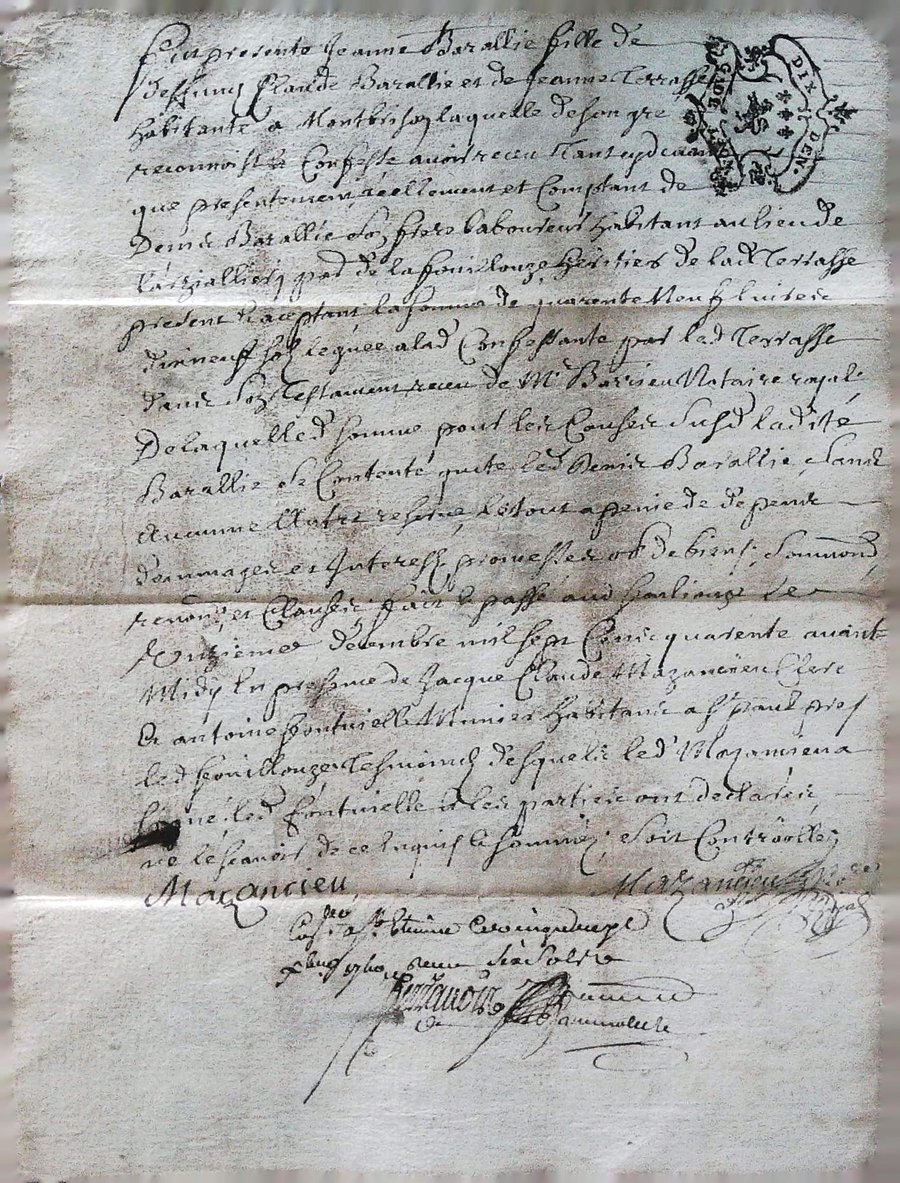 Fut presente Jeanne Barallie fille de
deffunq Claude Barallie et de Jeanne Terrasse
habitante a Montbrison laquelle de son gre
reconnoist & Confesse avoir receu tant cydevant
que presentement réellement et Comptant de
Denis Barallie son frere laboureur habitant au lieu de
par de la fouillouze heritier de lad Terrasse
present & aceptant la somme de quarente Neuf livres
dixneuf sols leguée a lad Confessante par lad Terrasse
dans son Testament receu de Me Barrieu Notaire royal
De laquelle d somme pour les Causes susd ladite
Barallie se Contente quite led Denis Barallie, sans
Aucunne Autre reserve, le tout a peine de depens
dommages et Interest, promesses ob de biens, soummons,
renons, et Clauses, fait & passé aud le
décembre mil sept Cents quarente avant
Midy En presence de Jacque Claude Mazancieu Clerc
& antoine fontvielle Munier habitants a St paul
led fouillouze tesmoins desquels led Mazancieu a
signé, led fontvielle & les parties ont declarés,
ne le scavoir de ce Enquis & sommés, soit Controolle,
Mazancieu Mazancieu Nore
Royal
Conlé a St Etienne
1740 Receu